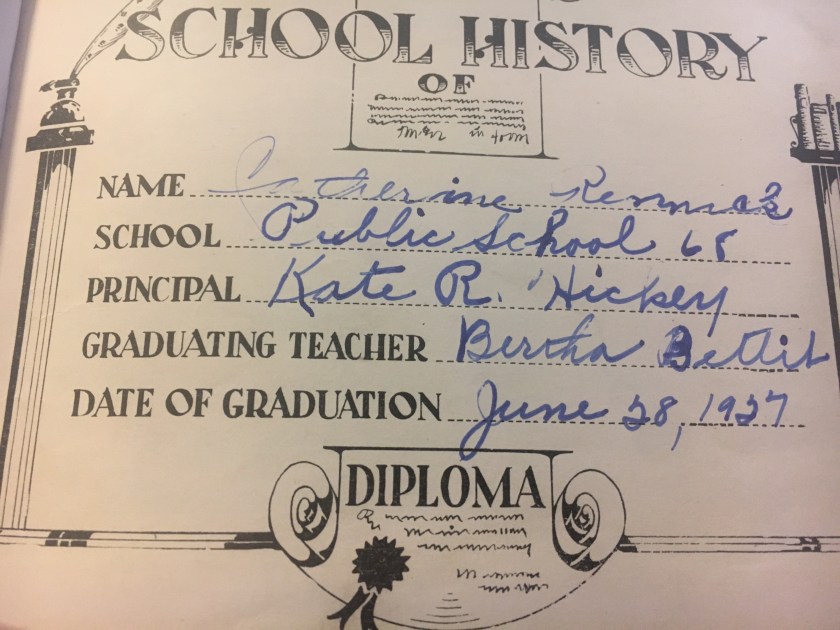 SCHOOL HISTORY
OF
NAME Catherine
SCHOOL Public School 68
PRINCIPAL Kate R. Hickey
GRADUATING TEACHER Bertha
DATE OF GRADUATION June 28, 1927
DIPLOMA